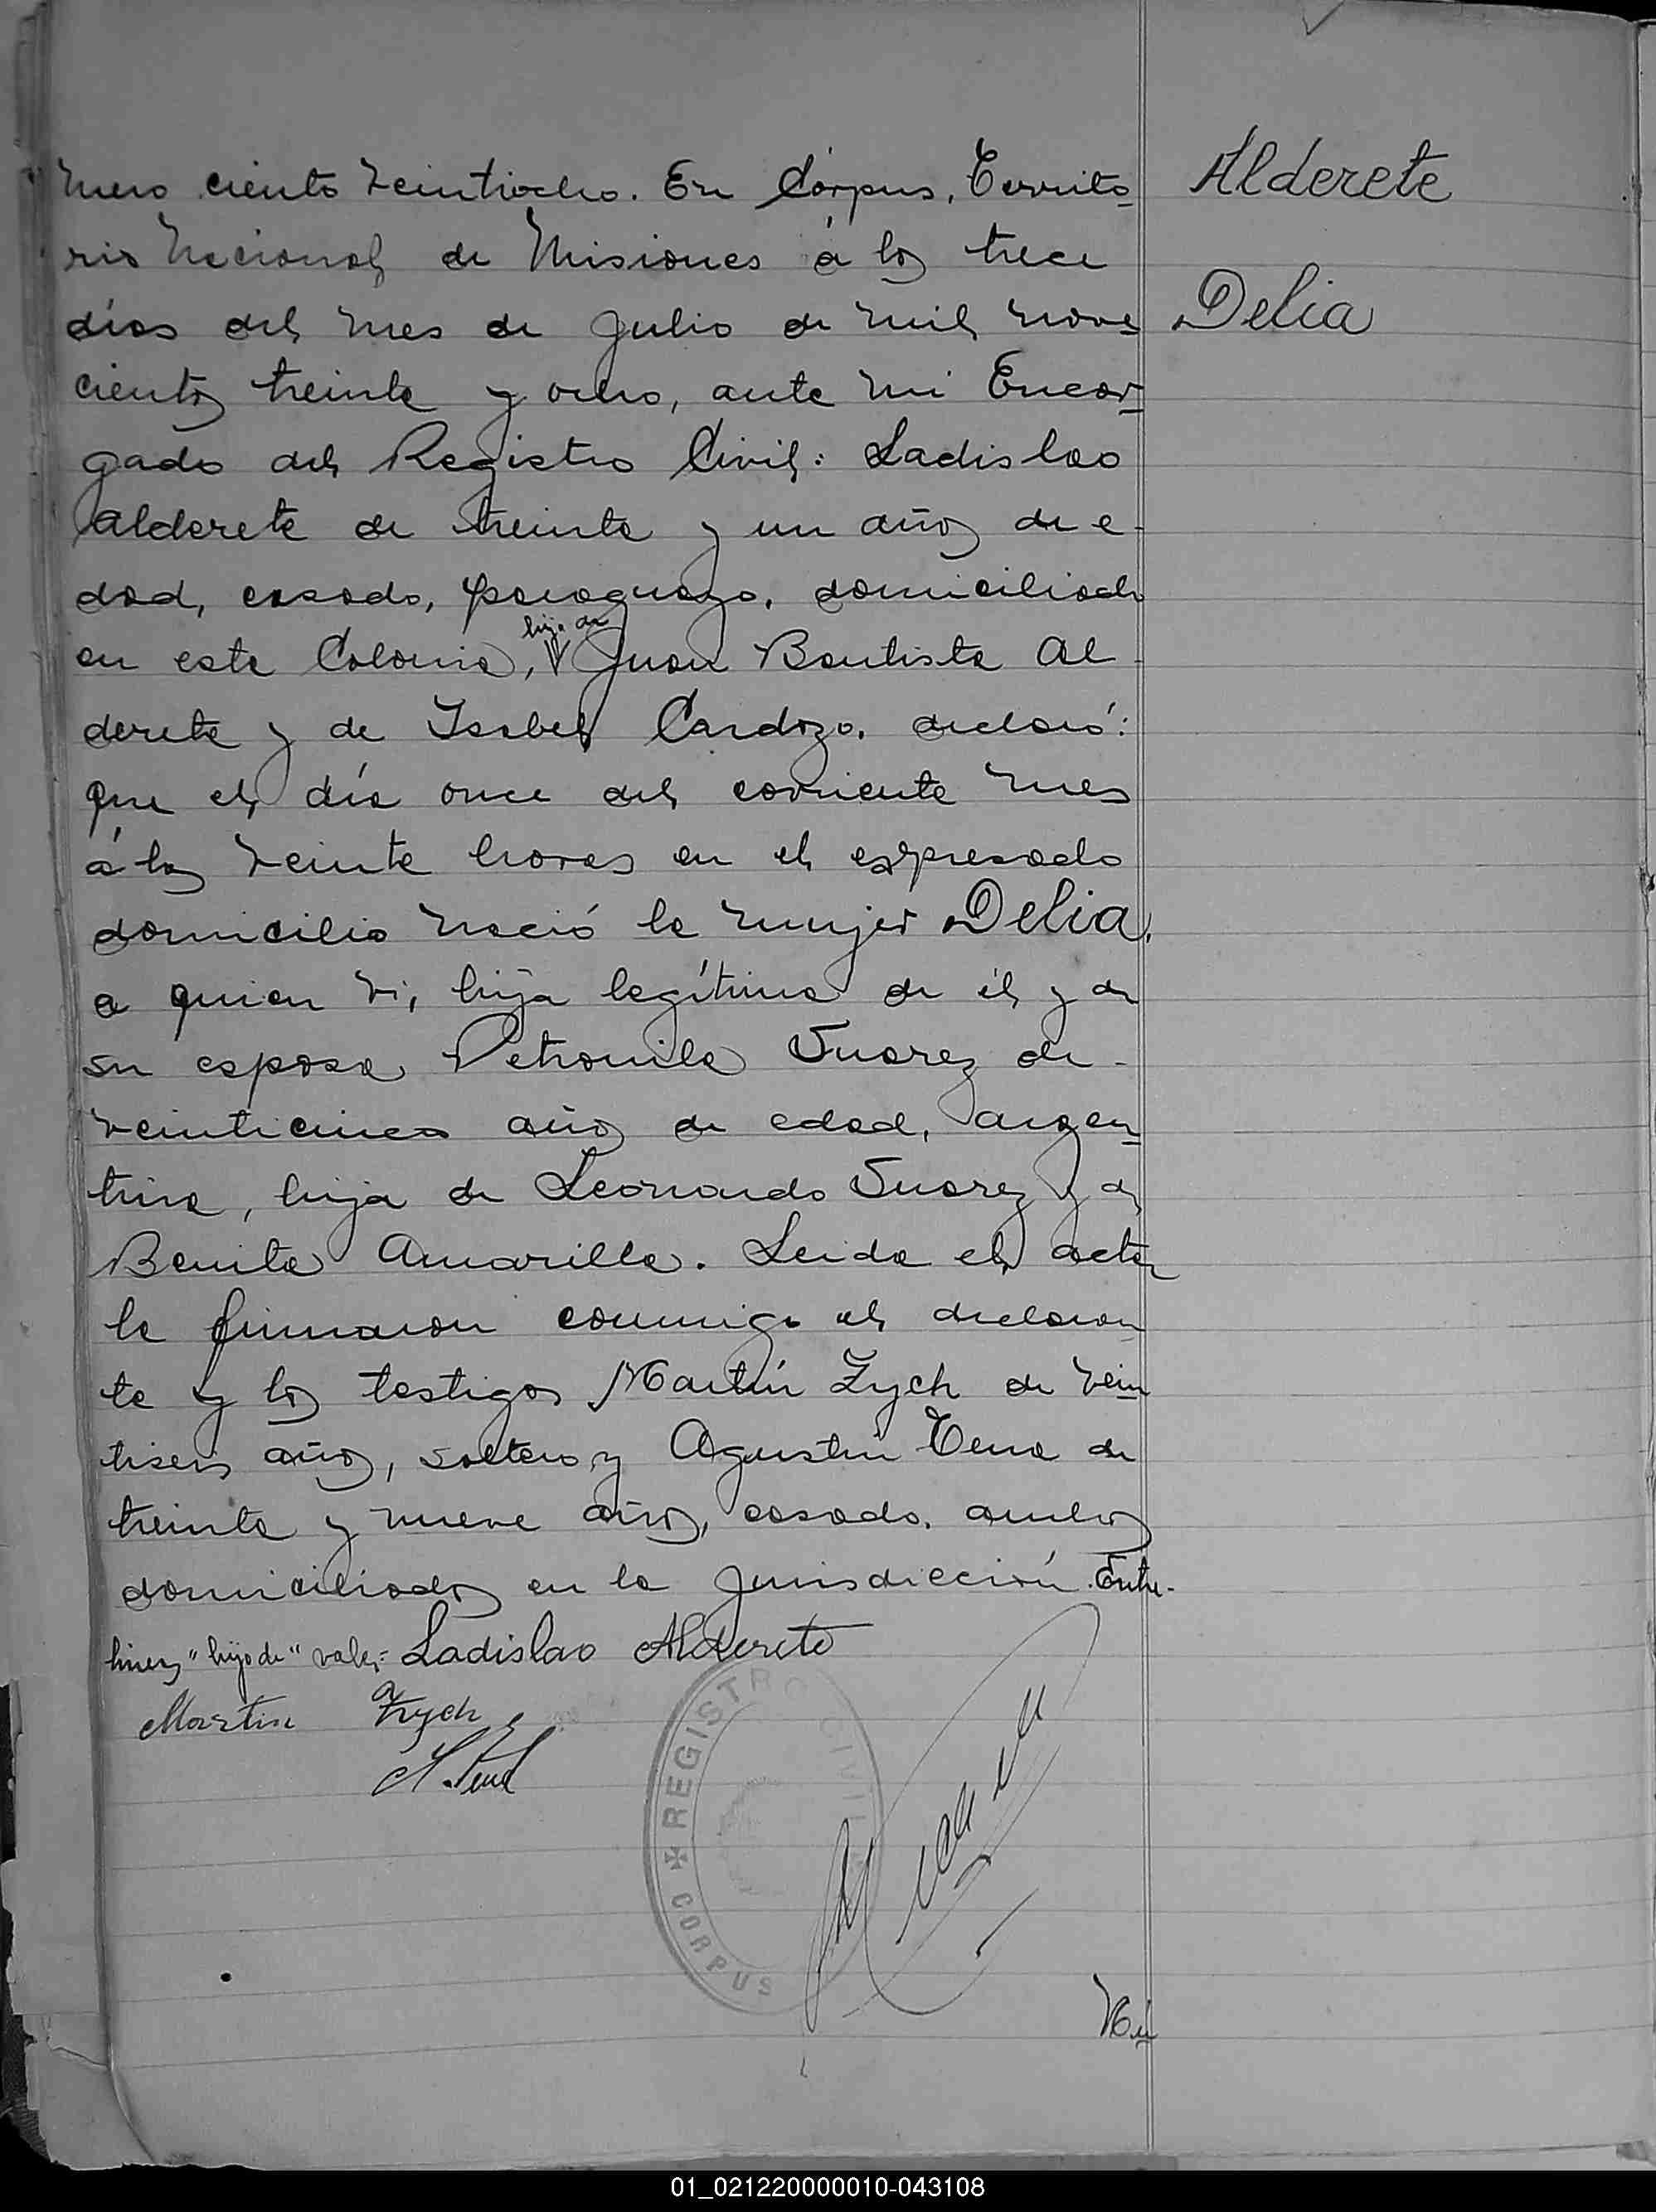 mero ciento veintiocho. En Córpus, Territo
Alderete
rio Nacional de Misiones á los trece
días del mes de Julio de mil nove
Delia
cientos treinta y ocho, ante mi Encar
gado del Registro Civil: Ladislao
Alderete de treinta y un años de e-
dad, casado, paraguayo, domiciliado
hijo de
en esta Colonia, Juan Bautista Al
derete y de Isabel Cardozo, declaró:
que el día once del corriente mes
á las veinte horas en el expresado
domicilio nació la mujer Delia,
a quien vi, hija legítima de él y de
su esposa Petronila Suarez de-
veinticinco años de edad, argen
tina, hija de Leonardo Suarez y de
Benita Amarilla. Leida el acta
la firmaron conmigo el declaran
te y los testigos Martín Zych de vein
tiseis años, soltero y Agustin Tena de
treinta y nueve años, casado, ambos
domiciliados en la Jurisdicción. Entre-
lineas "hijo de" vale:- Ladislao Alderete
Martin Zych
REGISTRO CIVIL
CORPUS
Nú
01_021220000010-043108